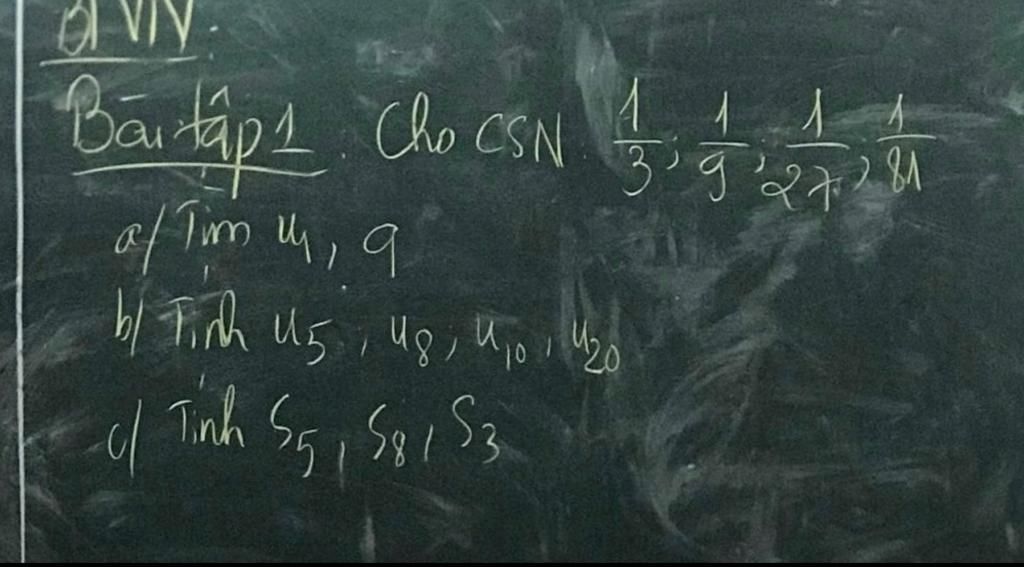 BTVN:
Bài tập 1. Cho CSN. 1/3; 1/9; 1/27; 1/81
a/ Tìm u1, q
b/ Tính u5, u8, u10, u20
c/ Tính S5, S8, S3